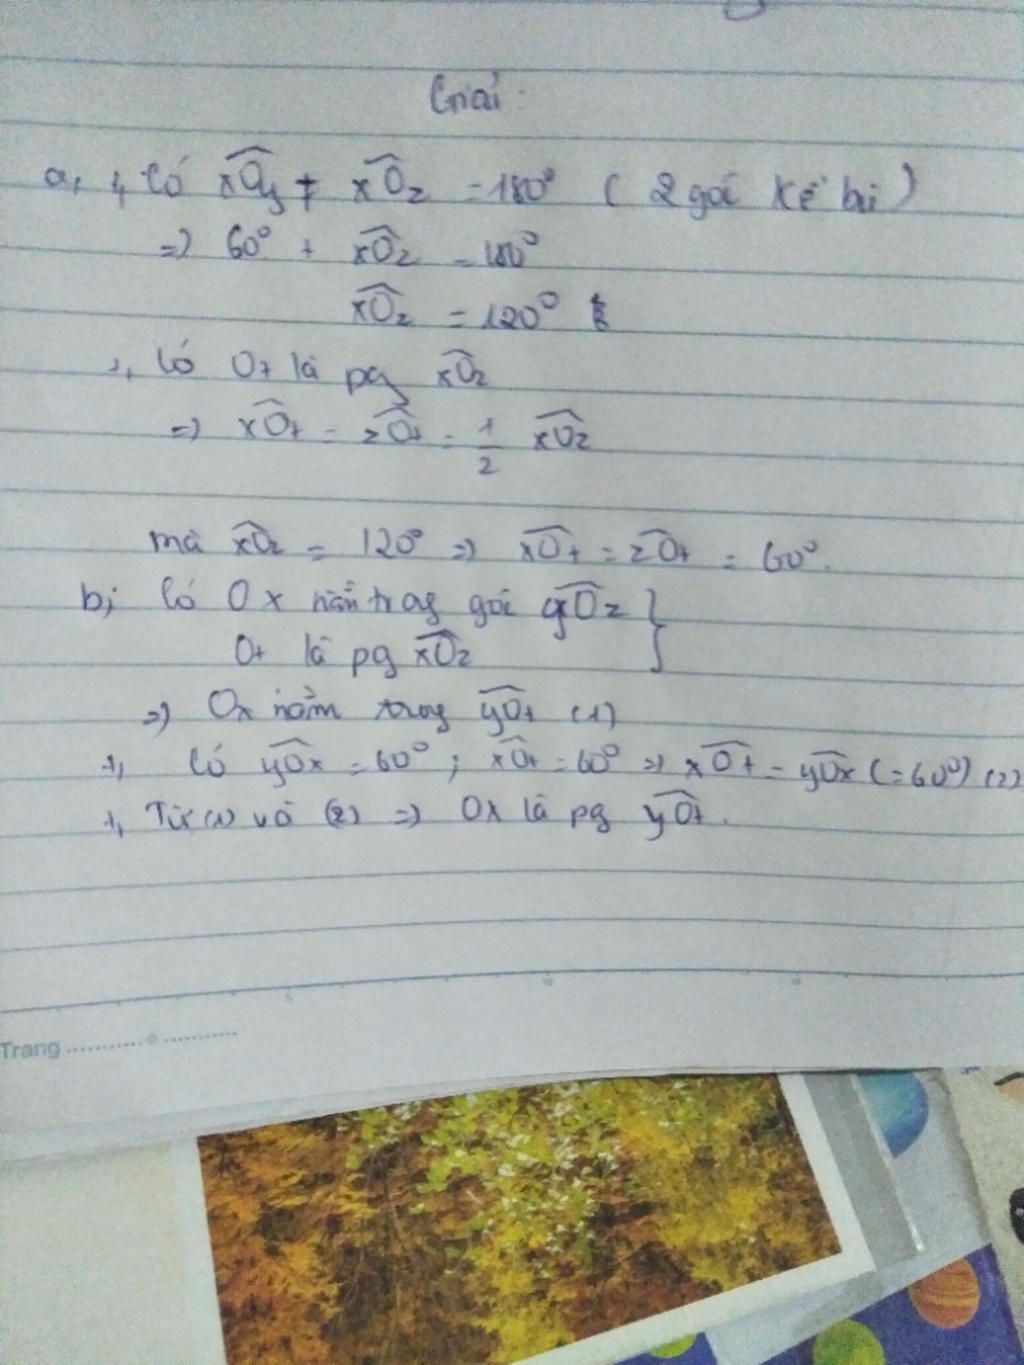 Giải:
a, +, Có xOy + xOz = 180° ( 2 góc kề bù )
=> 60° + xOz = 180°
xOz = 120°
+, Có Ot là pg xOz
=> xOt = zOt = 1/2 xOz
mà xOz = 120° => xOt = zOt = 60°.
b, Có Ox nằm trong góc yOz }
Ot là pg xOz
=> Ox nằm trong yOt (1)
+, Có yOx = 60° ; xOt = 60° => xOt = yOx (= 60°) (2)
+, Từ (1) và (2) => Ox là pg yOt.
Trang